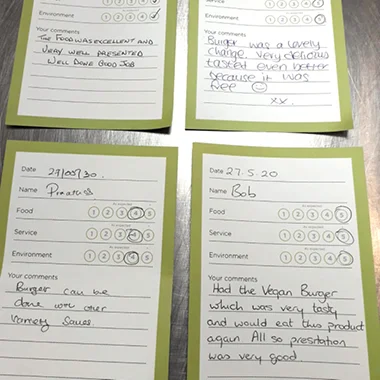 Environment 1 2 3 4 5
Your comments
THE FOOD WAS EXCELLENT AND
VERY WELL PRESENTED
WELL DONE GOOD JOB
Service 1 2 3 4 5
Environment 1 2 3 4 5
Your comments
Burger was a lovely
change, very delicious
tasted even better
because it was
free ☺
xx.
Date
Name
As expected
Food 1 2 3 4 5
Service 1 2 3 4 5
As expected
Environment 1 2 3 4 5
Your comments
Burger can be
done with other
variety sauces.
Date 27.5.20
Name Bob
As expected
Food 1 2 3 4 5
Service 1 2 3 4 5
As expected
Environment 1 2 3 4 5
Your comments
Had the Vegan Burger
which was very tasty
and would eat this product
again All so presitation
was very good.